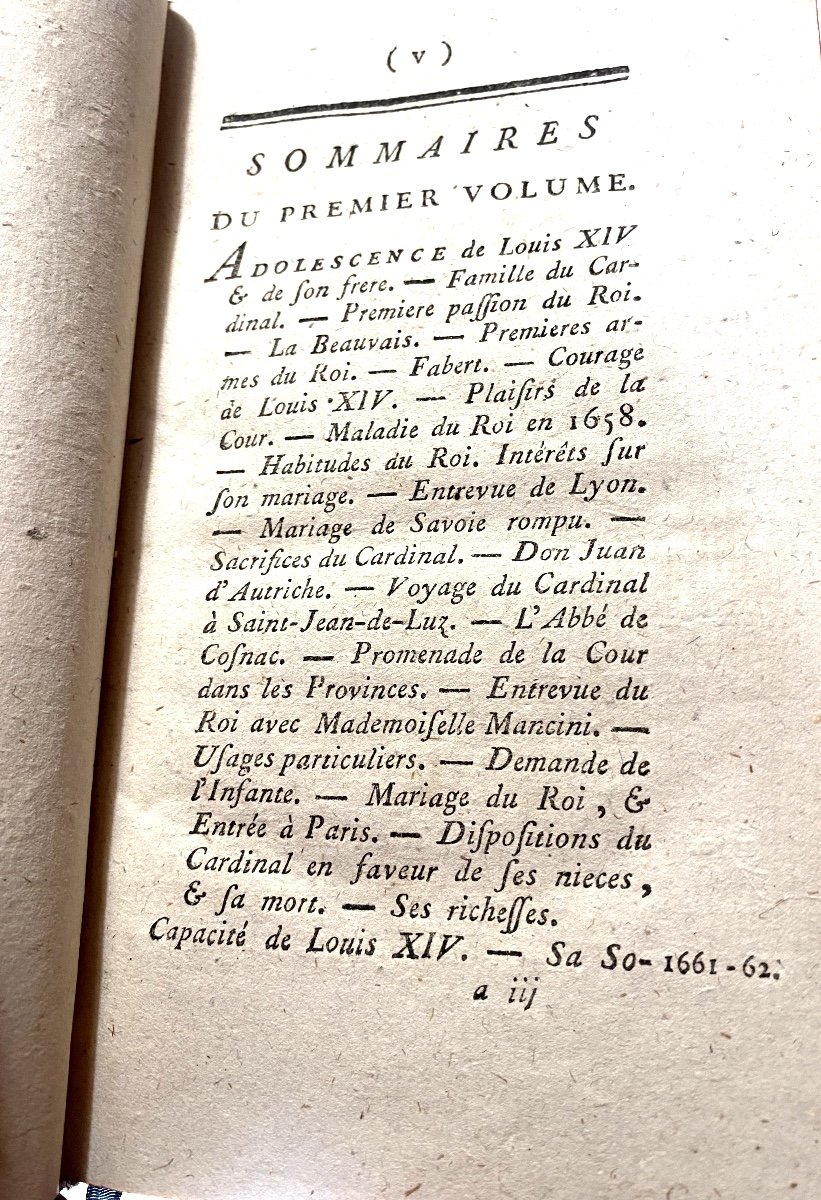 ( v )
SOMMAIRES
DU PREMIER VOLUME.
ADOLESCENCE de Louis XIV
& de ſon frere. — Famille du Car-
dinal. — Premiere paſſion du Roi.
— La Beauvais. — Premieres ar-
mes du Roi. — Fabert. — Courage
de Louis XIV. — Plaiſirs de la
Cour. — Maladie du Roi en 1658.
— Habitudes du Roi. Intérêts ſur
ſon mariage. — Entrevue de Lyon.
— Mariage de Savoie rompu. —
Sacrifices du Cardinal. — Don Juan
d'Autriche. — Voyage du Cardinal
à Saint-Jean-de-Luz. — L'Abbé de
Coſnac. — Promenade de la Cour
dans les Provinces. — Entrevue du
Roi avec Mademoiſelle Mancini. —
Uſages particuliers. — Demande de
l'Infante. — Mariage du Roi, &
Entrée à Paris. — Diſpoſitions du
Cardinal en faveur de ſes nieces,
& ſa mort. — Ses richeſſes.
Capacité de Louis XIV. — Sa So- 1661-62.
a iij